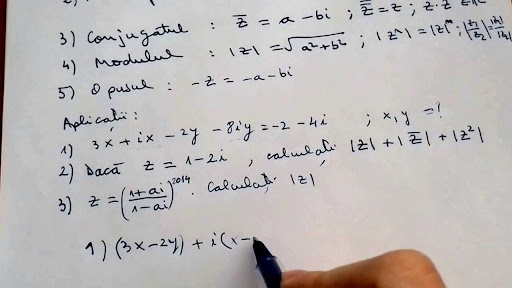 3) Conjugatul : z̅ = a - bi ; z̿ = z ; z · z̅ ∈ ℝ
4) Modulul : |z| = √a²+b² ; |zⁿ| = |z|ⁿ ; |z₁/z₂| = |z₁|/|z₂|
5) Opusul : -z = -a - bi
Aplicații :
1) 3x + ix - 2y - 8iy = -2 - 4i ; x, y = ?
2) Dacă z = 1 - 2i , calculați |z| + |z̅| + |z²|
3) z = (1+ai/1-ai)²⁰¹⁴. Calculați |z|
1) (3x - 2y) + i(x -